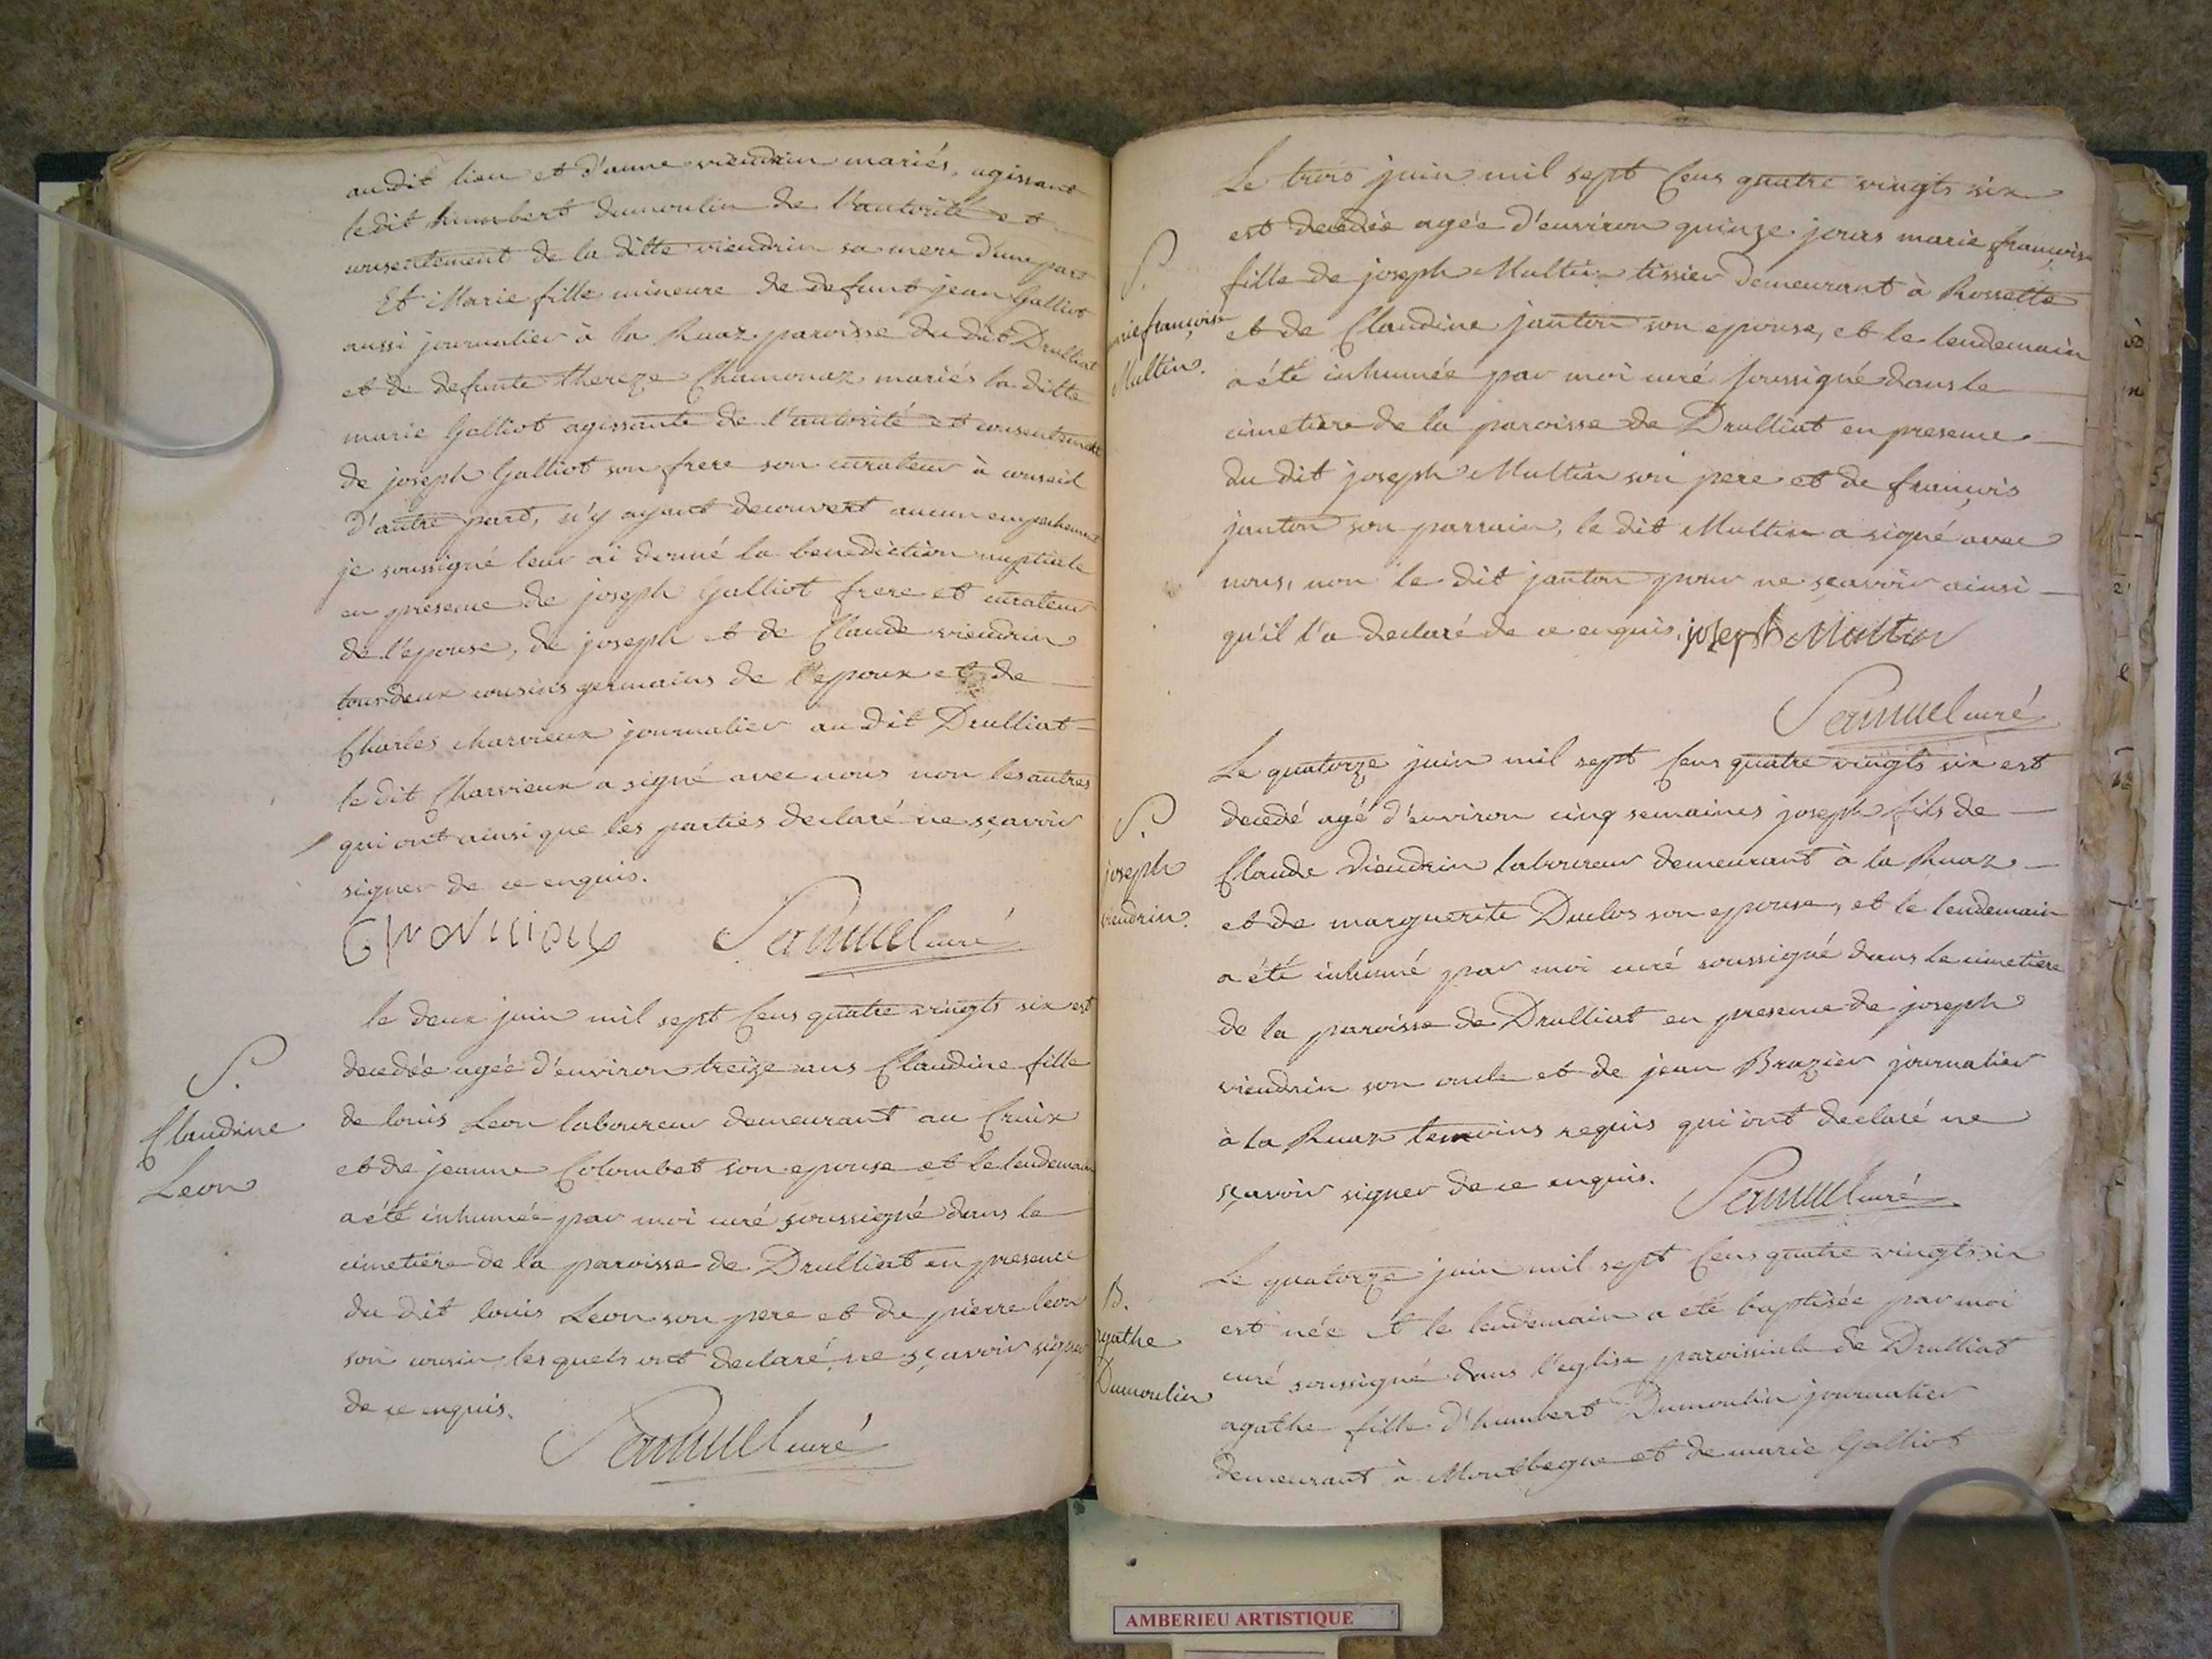 au dit lieu et d'anne viendrin mariés, agissant
le dit humbert dumoulin de l'autorité et
consentement de la ditte viendrin sa mere d'une part
Et Marie fille mineure de defunt jean Galliot
aussi journalier à la Ruaz paroisse du dit Drulliat
et de defunte thereze Chamonaz mariés la ditte
marie Galliot agissante de l'autorité et consentement
de joseph Galliot son frere son curateur à conseil
d'autre part, n'y ayant decouvert aucun empechement
je soussigné leur ai donné la benediction nuptiale
en presence de joseph Galliot frere et curateur
de l'epouse, de joseph et de Claude viendrin
tous deux cousins germains de l'epoux et de
Charles charvieux journalier au dit Drulliat
le dit Charvieux a signé avec nous non les autres
qui ont ainsi que les parties declaré ne sçavoir
signer de ce enquis.
Samuel curé
S.
Claudine
Leon
le deux juin mil sept Cens quatre vingts six est
decedée agée d'environ treize ans Claudine fille
de louis Leon laboureur demeurant au Cruix
et de jeanne Colombet son epouse et le lendemain
a été inhumée par moi curé soussigné dans le
cimetiere de la paroisse de Drulliat en presence
du dit louis Leon son pere et de pierre leon
son cousin lesquels ont declaré ne sçavoir signer
de ce enquis.
Samuel curé
S.
marie françoise
Multin.
Le trois juin mil sept Cens quatre vingts six
est decedée agée d'environ quinze jours marie françoise
fille de joseph Multin tissier demeurant à Rossette
et de Claudine janton son epouse, et le lendemain
a été inhumée par moi curé soussigné dans le
cimetiere de la paroisse de Drulliat en presence
du dit joseph Multin son pere et de françois
janton son parrain, le dit Multin a signé avec
nous, non le dit janton pour ne sçavoir ainsi
qu'il l'a declaré de ce enquis. joseph Multin
Samuel curé
S.
joseph
viendrin.
Le quatorze juin mil sept Cens quatre vingts six est
decedé agé d'environ cinq semaines joseph fils de
Claude viendrin laboureur demeurant à la Ruaz
et de marguerite Duclos son epouse, et le lendemain
a été inhumé par moi curé soussigné dans le cimetiere
de la paroisse de Drulliat en presence de joseph
viendrin son oncle et de jean Brazier journalier
à la Ruaz temoins requis qui ont declaré ne
sçavoir signer de ce enquis.
Samuel curé
B.
agathe
Dumoulin
Le quatorze juin mil sept Cens quatre vingts six
est née et le lendemain a été baptisée par moi
curé soussigné dans l'eglise paroissiale de Drulliat
agathe fille d'humbert Dumoulin journalier
demeurant à Montbegue et de marie Galliot
AMBERIEU ARTISTIQUE